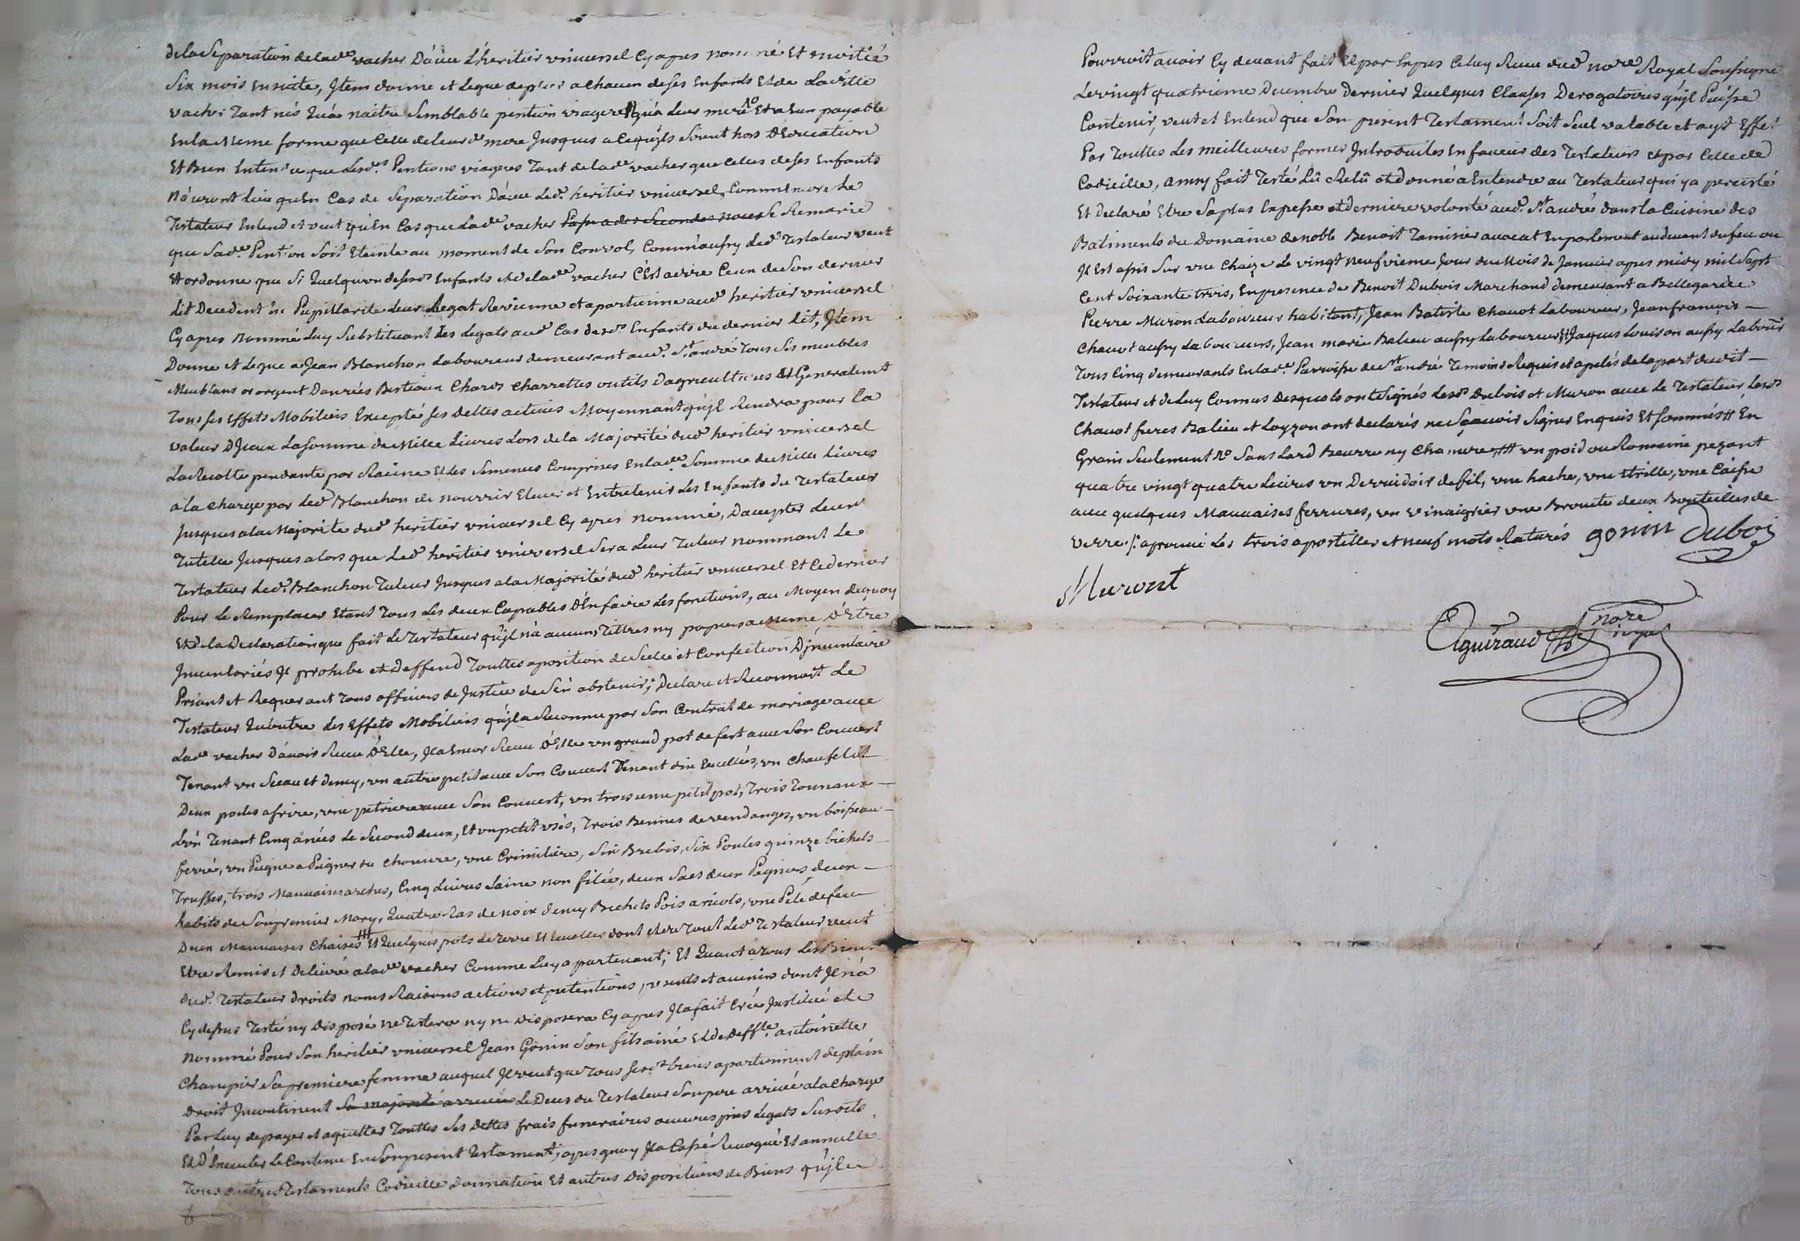 de la Separation de lad.e vacher Davec L'heritier universel Cy apres nommé Et moitié
Six mois Ensuite, Item donne et legue de plus a chacun de ses Enfants Et de Laditte
vacher Tant nés qu'a naitre Semblable pention viagere qu'a leur mere Et a Eux payable
En la meme forme que Celle de leurd.e mere Jusques a ce qu'ils Soient hors D'Education
Et Bien Entendu que lesd.es Pentions viageres Tant de lad.e vacher que Celles de ses Enfants
N'auront lieu qu'En Cas de Separation D'avec led.t heritier universel, Comm'encore Le
Testateur Entend et veut qu'En Cas que lad.e vacher Se Remarie
que Sad.e Pention Soit Eteinte au moment de Son Convol, Comm'aussy led.t Testateur veut
Et ordonne que Si Quelqu'un desd.ts Enfants de lad.e vacher C'est a dire Ceux de Son dernier
Lit Decedent En Pupillarité leur Legat Revienne et apartienne aud.t heritier universel
Cy apres Nommé Luy Substituant les legats aud.t Cas desd.ts Enfants du dernier lit, Item
Donne et legue a Jean Blanchon Laboureur demeurant aud.t St andré Tous Ses meubles
Meublans or argent Danrées Bestiaux Chars Charrettes outils d'agriculture Et Generalem.t
Tous ses Effets Mobiliers Excepté ses dettes actives Moyennant qu'il Rendra pour la
valeur D'Iceux La Somme de Mille Livres Lors de la Majorité dud.t heritier universel
La Recolte pendante par Racine Et les Semences Comprises En lad.e Somme de Mille Livres
a la Charge par led.t Blanchon de nourrir Elever et Entretenir les Enfants du Testateur
Jusques a la Majorité dud.t heritier universel Cy apres nommé, D'accepter leur
Tutelle Jusques alors que led.t heritier universel Sera leur Tuteur nommant le
Testateur led.t Blanchon Tuteur Jusques a la Majorité dud.t heritier universel Et Ce dernier
Pour le Remplacer Etant Tous les deux Capables D'En faire les fonctions, au Moyen dequoy
Et de la Declaration que fait le Testateur qu'il n'a aucuns Tittres ny papiers a meme D'Etre
Inventoriés Il prohibe et deffend Touttes aposition de Scellé et Confection D'Inventaire
Priant et Requerant Tous officiers de Justice de S'en abstenir; Declare et Reconnoit Le
Testateur Qu'outre les Effets Mobiliers qu'il a Reconnu par Son Contrat de mariage avec
Lad.e vacher D'avoir Receu D'Elle, Il a Encor Receu D'Elle un grand pot de fert avec Son Couvert
Tenant un Seau et demy, un autre petit avec Son Couvert Tenant dix Ecuelles, un Chaufelit
Deux poiles a frire, une petriere avec Son Couvert, un troisieme petit pot, Trois Tonnaux
L'un Tenant Cinq anées le Second deux, Et un petit usés, Trois Bennes de vendanges, un boisseau
ferré, un Peigne a Peigner du Chanvre, une Cremiliere, Six Brebis, Six Poules quinze bichets
Truffes, trois Mauvaises arches, Cinq Livres Laine non filée, deux Sacs deux Peignoirs, deux
habits de Son premier Mary, Quatre Ras de noix demy Bichets Pois aricots, une Pele de feu
Deux Mauvaises Chaises # Et Quelques pots de Terre Et Ecuelles dont et du Tout Led.t Testateur veut
Etre Remis et Delivré a lad.e vacher Comme Luy apartenant; Et Quant a Tous Les Biens
dud.t Testateur droits noms Raisons actions et pretentions presents et avenirs dont Il n'a
Cy dessus Testé ny Disposé ne Testera ny ne Disposera Cy apres Il a fait Crée Institué et
Nommé Pour Son heritier universel Jean Gonin Son fils ainé Et de deff.te antoinette
Champier Sa premiere femme auquel Il veut que Tous sesd.ts biens apartiennent de plein
Droit Incontinent Sa majorité arrivée Le Deces du Testateur Son pere arrivé a la Charge
Par Luy de payer et aquitter Touttes Ses dettes frais funeraires œuvres pies Legats Susdits
Et D'Executer le Contenu En Son present Testament; apres quoy Il a Cassé Revoqué Et annullé
Tous autres Testaments Codicille Donnation Et autres dispositions de Biens qu'il
Pourroit avoir Cy devant fait Et par Expres Celuy Receu dud.t no.re Royal Soussigné
Le vingt quatrieme Decembre dernier Quelques Clauses Derogatoires qu'il Puisse
Contenir, veut et Entend que Son present Testament Soit Seul valable et ayt Effet
Par Touttes les meilleures formes Introduites En faveur des Testateurs et par Celle de
Codicille, ainsy fait Testé Lû Relû et donné a Entendre au Testateur qui y a persisté
Et Declaré Etre Sa plus Expresse et derniere volonté aud.t St andré dans la Cuisine des
Batiments du Domaine de noble Benoit Tamisier avocat En parlement au devant du feu ou
Il Est assis Sur une Chaize Le vingt neufvieme Jour du Mois de Janvier apres midy mil Sept
Cent Soixante trois, En presence de Benoit Dubois Marchand demeurant a Bellegarde
Pierre Muron Laboureur habitant, Jean Batiste Chavot Laboureur, Jean françois
Chavot aussy Laboureur, Jean marie Balieu aussy Laboureur Et Jaques Louison aussy Labour.r
Tous Cinq demeurants En lad.e Parroisse de St andré Temoins Requis et apelés de la part dudit
Testateur et de Luy Connus Desquels ont Signés lesd.ts Dubois et Muron avec le Testateur lesd.ts
Chavot freres Balieu et Loyzon ont declarés ne Sçavoir Signer Enquis Et Sommés # En
Grain Seulement N.o Sans Lard Beurre ny Chanvre # un poid ou Romaine pezant
quatre vingt quatre Livres un Devuidoir de fil, une hache, une trille, une Caisse
avec quelques Mauvaises ferrures, un vinaigrier une Brouete deux Bouteilles de
verre /: aprouvé Les trois apostilles et neuf mots Raturés gonin Dubois
Muront
Aguiraud no.re royal